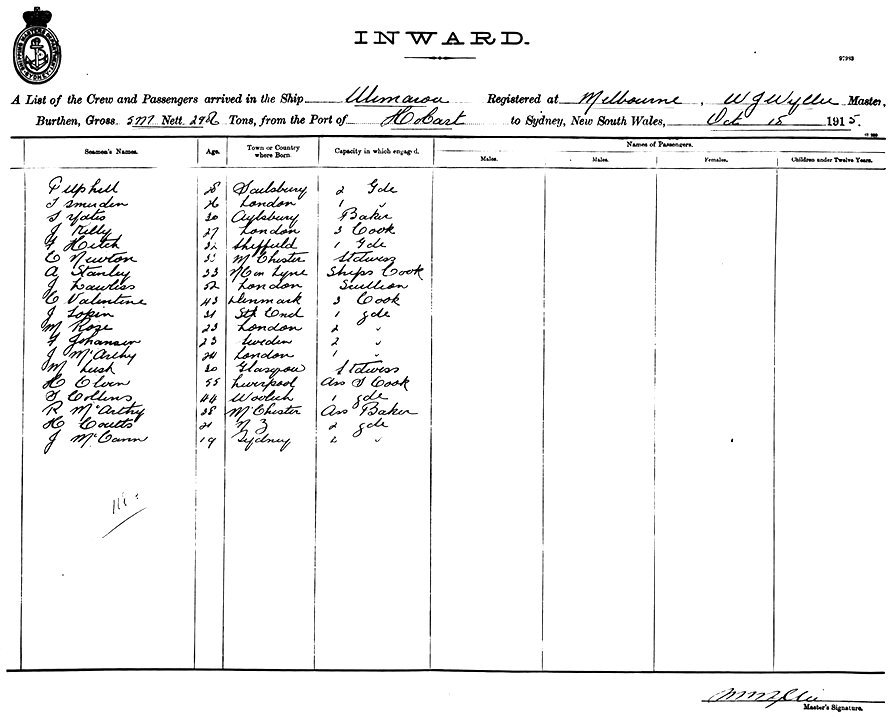 INWARD.
97983
A List of the Crew and Passengers arrived in the Ship Ulimaroa Registered at Melbourne, W J Wyllie Master,
Burthen, Gross 5777 Nett. Tons, from the Port of Hobart to Sydney, New South Wales, Oct 15 1915.
Names of Passengers.
Seamen's Names. Age. Town or Country where Born Capacity in which engaged. Males. Males. Females. Children under Twelve Years.
28 Saulsbury 2 Gde
26 London 1 "
S Yates 30 Aylsbury Baker
J Kelly 27 London 3 Cook
F Hitch 32 Sheffield 1 Gde
C Newton 35 McChester Stdwess
A Stanley 33 N C on Lyne Ships Cook
J Lawless 52 London Scullion
C Valentine 43 Denmark 3 Cook
J 31 Sth End 1 gde
M Roze 23 London 2 "
F Johansen 23 Sweden 2 "
J McArthy 24 London 1 "
M Lush 30 Glasgow Stdwess
H Elvin 55 Liverpool Ass S Cook
S Collins 44 Woolich 1 gde
R McArthy 38 McChester Ass Baker
H Coutts 21 N Z 2 gde
J McCann 19 Sydney 2 "
Master's Signature.